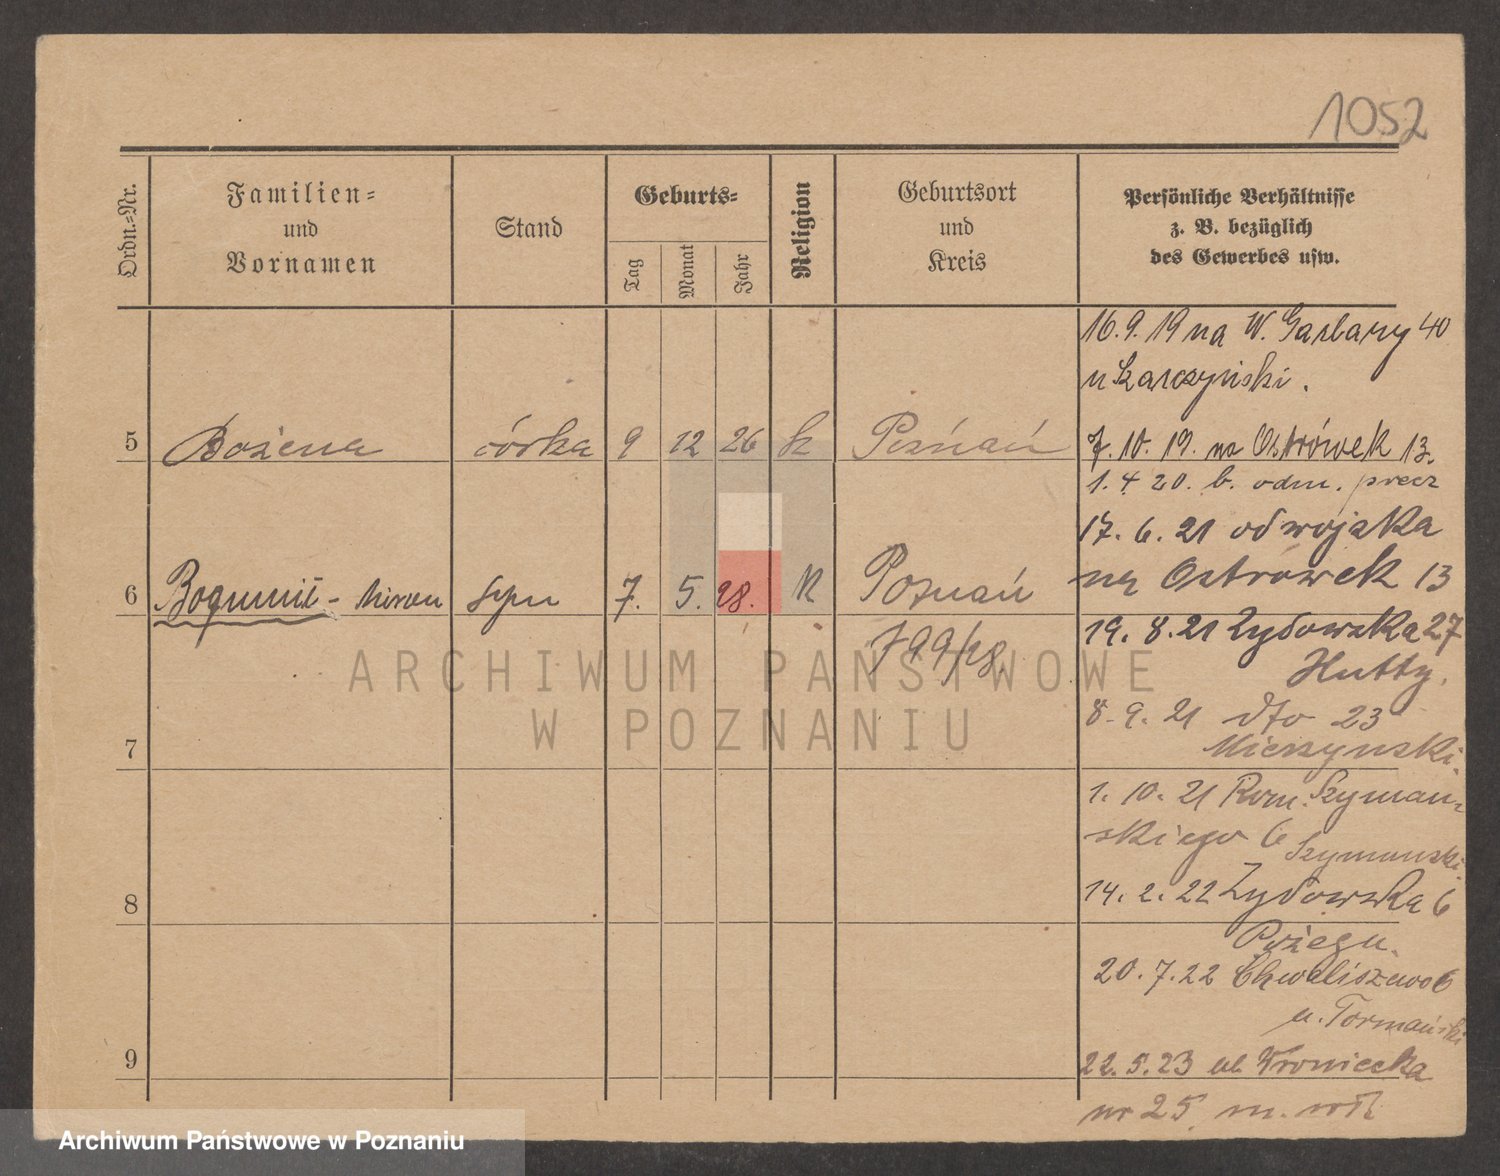 1052
Ordn.=Nr.
Familien=
und
Vornamen
Stand
Geburts=
Tag
Monat
Jahr
Religion
Geburtsort
und
Kreis
Persönliche Verhältnisse
z. B. bezüglich
des Gewerbes usw.
16.9.19 na W. Garbary 40
u Szarczyński.
5 Bożena córka 9 12 26 k Poznań
7.10.19. na Ostrówek 13.
1.4 20. b. odm. precz
17.6.21 od wojska
na Ostrówek 13
6 Bogumił - Miron syn 7. 5. 28. k Poznań
799/28
19.8.21 Żydowska 27
Hutty.
8.9.21 dto 23
Mierzynski.
7
1.10.21 Rom. Szymań-
skiego 6 Szymanski.
14.2.22 Żydowska 6
8
20.7.22 Chwaliszewo 6
u. Tormański
22.5.23 ul. Wroniecka
9
nr 25
ARCHIWUM PAŃSTWOWE
W POZNANIU
Archiwum Państwowe w Poznaniu